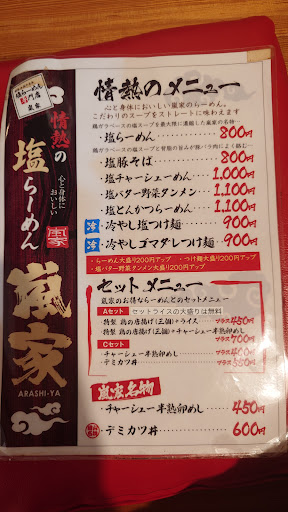 塩らーめん
専門店
嵐家
情熱の
塩らーめん
心と身体に
おいしい
嵐家
ARASHI-YA
情熱のメニュー
心と身体においしい嵐家のらーめん。
こだわりのスープをストレートに味わえます
・塩らーめん 800円
・塩豚そば 800円
・塩チャーシューめん 1,000円
・塩バター野菜タンメン 1,100円
・塩とんかつらーめん 1,100円
冷 冷やし塩つけ麺 900円
冷 冷やしゴマダレつけ麺 900円
・らーめん大盛り200円アップ ・つけ麺大盛り200円アップ
・塩バター野菜タンメン大盛り200円アップ
セットメニュー
嵐家のお得ならーめんとのセットメニュー
Aセット セットライスの大盛りは無料
・特製 鶏の唐揚げ(三個)+ライス プラス450円
Cセット
・チャーシュー半熟卵めし プラス400円
・デミカツ丼
嵐家名物
・チャーシュー半熟卵めし 450円
デミカツ丼 600円